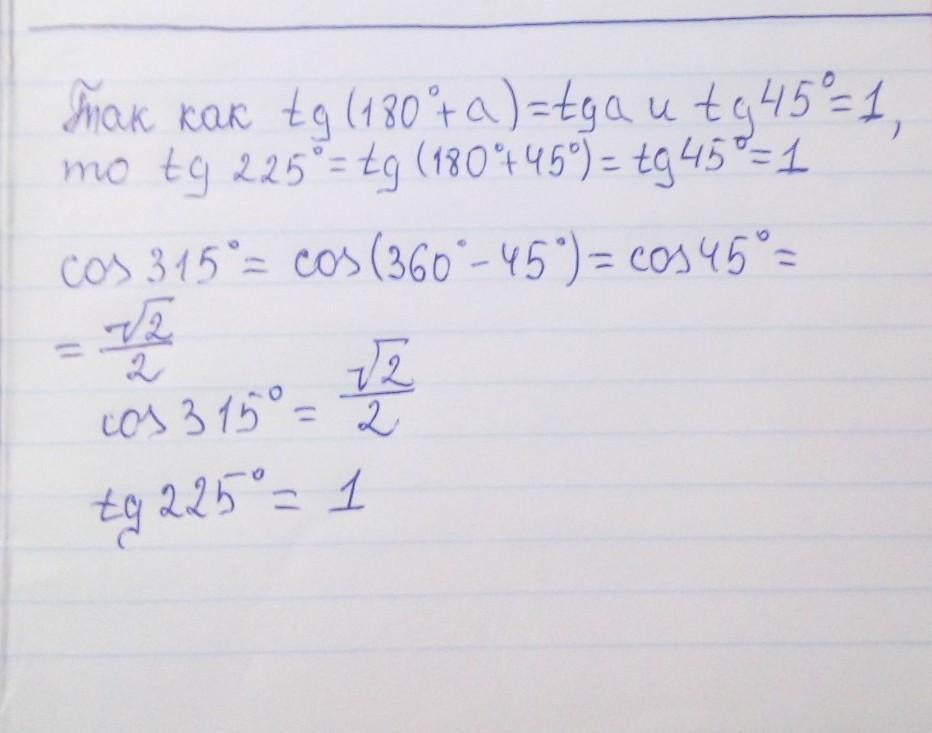 Так как tg (180°+a)=tga и tg45°=1,
то tg 225°=tg (180°+45°)= tg45°=1
cos 315°= cos(360°-45°)= cos45°=
= √2/2
cos 315°= √2/2
tg 225°= 1